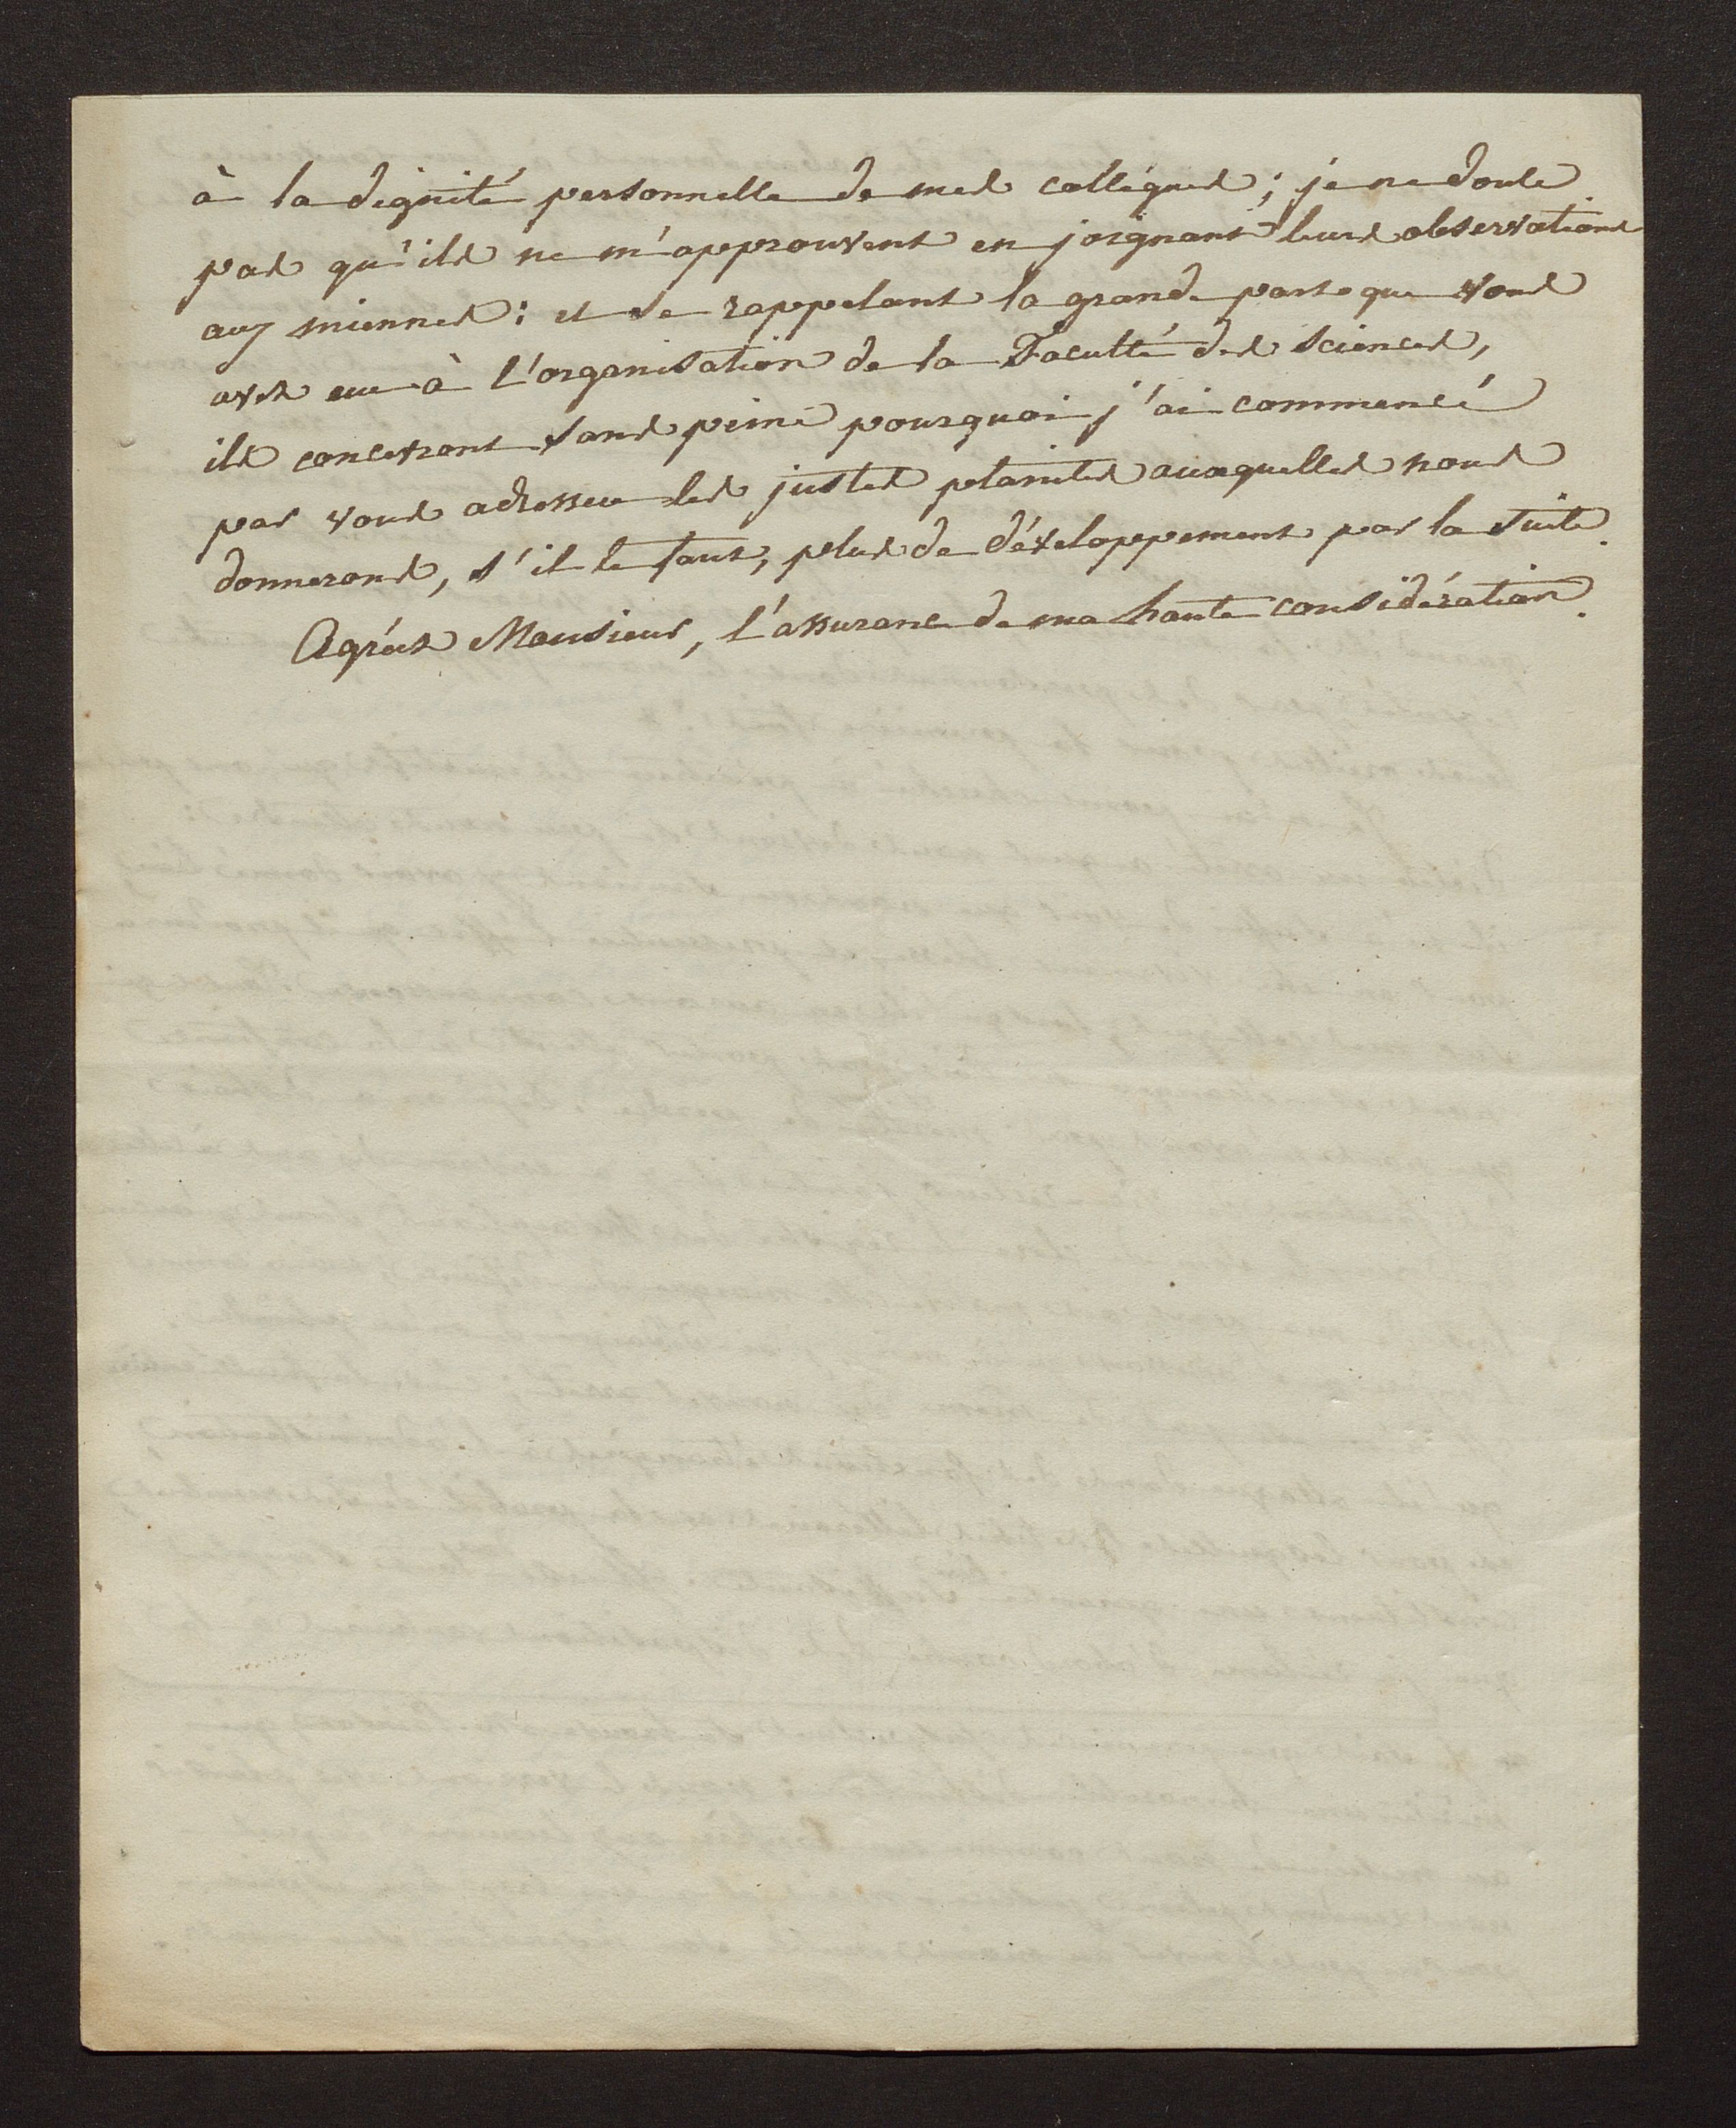 à la dignité personnelle de mes collègues ; je ne doute
pas qu'ils ne m'approuvent en joignant leurs observations
aux miennes : et se rappelant la grande part que vous
avez eue à l'organisation de la Faculté des Sciences,
ils concevront sans peine pourquoi j'ai commencé
par vous adresser les justes plaintes auxquelles nous
donnerons, s'il le faut, plus de développement par la suite.
Agréez Monsieur, l'assurance de ma haute considération.